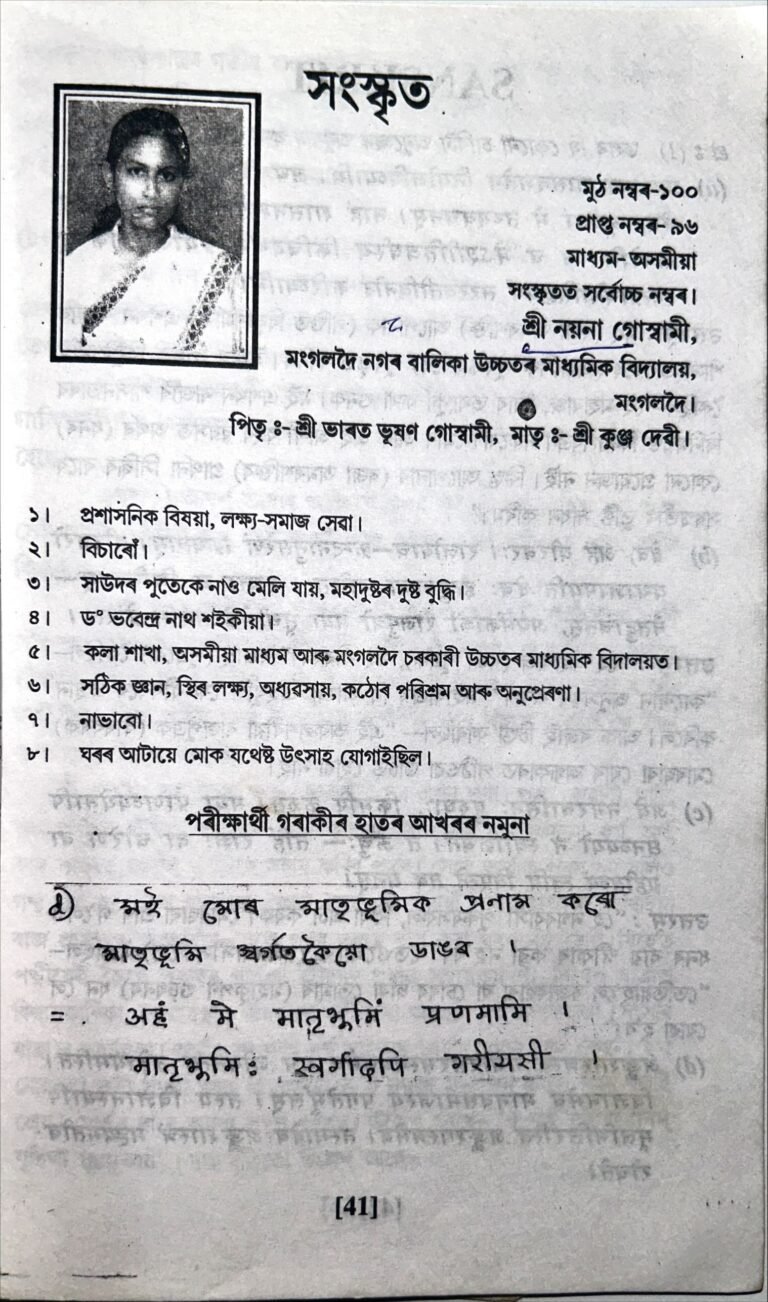 সংস্কৃত
মুঠ নম্বৰ-১০০
প্ৰাপ্ত নম্বৰ- ৯৬
মাধ্যম- অসমীয়া
সংস্কৃতত সৰ্বোচ্চ নম্বৰ।
শ্ৰী নয়না গোস্বামী,
মংগলদৈ নগৰ বালিকা উচ্চতৰ মাধ্যমিক বিদ্যালয়,
মংগলদৈ।
পিতৃ ঃ- শ্ৰী ভাৰত ভূষণ গোস্বামী, মাতৃ ঃ- শ্ৰী কুঞ্জ দেবী।
১। প্ৰশাসনিক বিষয়া, লক্ষ্য-সমাজ সেৱা।
২। বিচাৰোঁ।
৩। সাউদৰ পুতেকে নাও মেলি যায়, মহাদুষ্টৰ দুষ্ট বুদ্ধি।
৪। ড° ভবেন্দ্ৰ নাথ শইকীয়া।
৫। কলা শাখা, অসমীয়া মাধ্যম আৰু মংগলদৈ চৰকাৰী উচ্চতৰ মাধ্যমিক বিদালয়ত।
৬। সঠিক জ্ঞান, স্থিৰ লক্ষ্য, অধ্যৱসায়, কঠোৰ পৰিশ্ৰম আৰু অনুপ্ৰেৰণা।
৭। নাভাবো।
৮। ঘৰৰ আটায়ে মোক যথেষ্ট উৎসাহ যোগাইছিল।
পৰীক্ষাৰ্থী গৰাকীৰ হাতৰ আখৰৰ নমুনা
d) মই মোৰ মাতৃভূমিক প্ৰনাম কৰো
মাতৃভূমি স্বৰ্গতকৈয়ো ডাঙৰ ।
= . अहं मे मातृभूमिं प्रणमामि ।
मातृभूमिः स्वर्गादपि गरीयसी ।
[41]